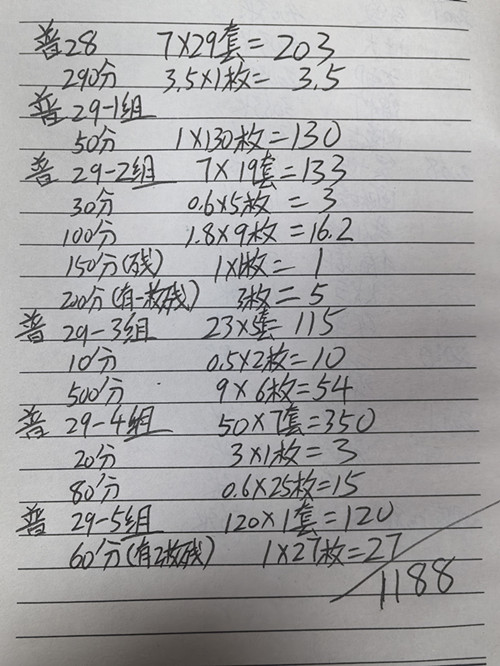 普28 7×29套=203
290分 3.5×1枚= 3.5
普29-1组
50分 1×130枚=130
普29-2组 7×19套=133
30分 0.6×5枚=3
100分 1.8×9枚=16.2
150分(残) 1×1枚= 1
200分(有一枚残) 3枚=5
普29-3组 23×5套=115
10分 0.5×2枚=10
500分 9×6枚=54
普29-4组 50×7套=350
20分 3×1枚=3
80分 0.6×25枚=15
普29-5组 120×1套=120
60分(有2枚残) 1×27枚=27
1188